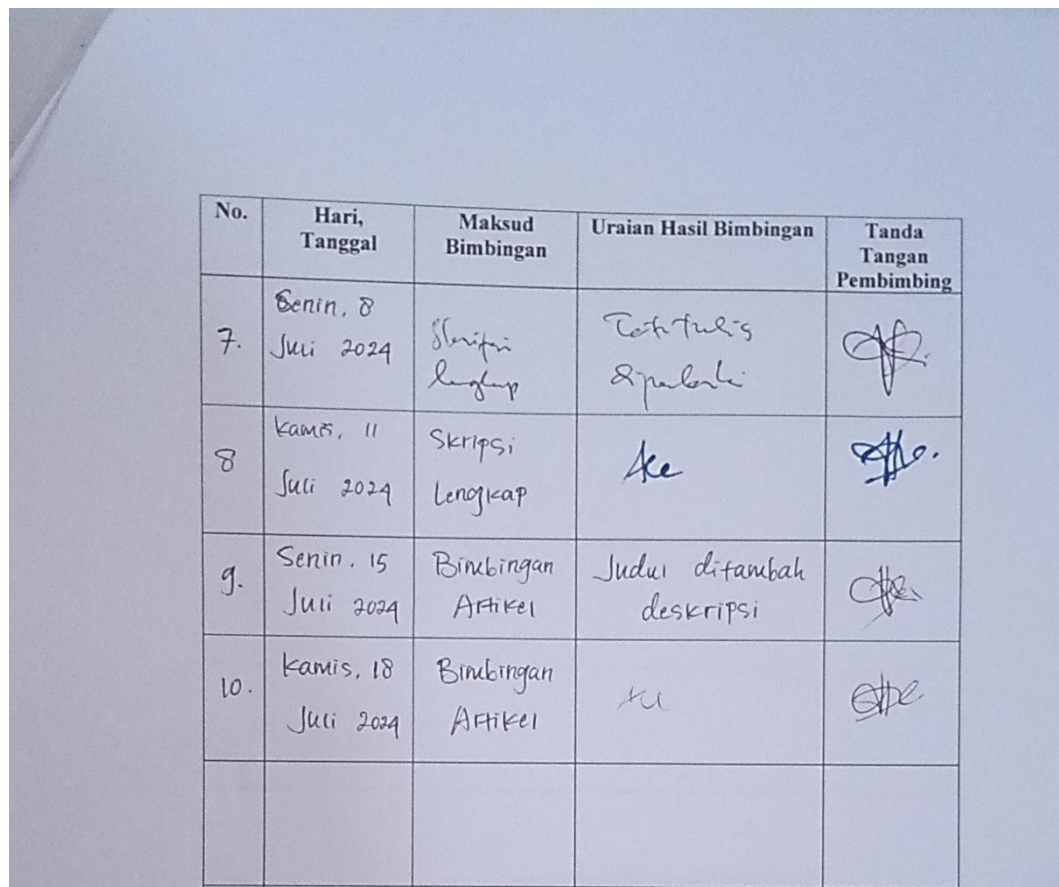 No.
Hari,
Tanggal
Maksud
Bimbingan
Uraian Hasil Bimbingan
Tanda
Tangan
Pembimbing
7.
Senin, 8
Juli 2024
Skripsi
lengkap
Tata tulis
diperbaiki
8
Kamis, 11
Juli 2024
Skripsi
Lengkap
Acc
9.
Senin, 15
Juli 2024
Bimbingan
Artikel
Judul ditambah
deskripsi
10.
Kamis, 18
Juli 2024
Bimbingan
Artikel